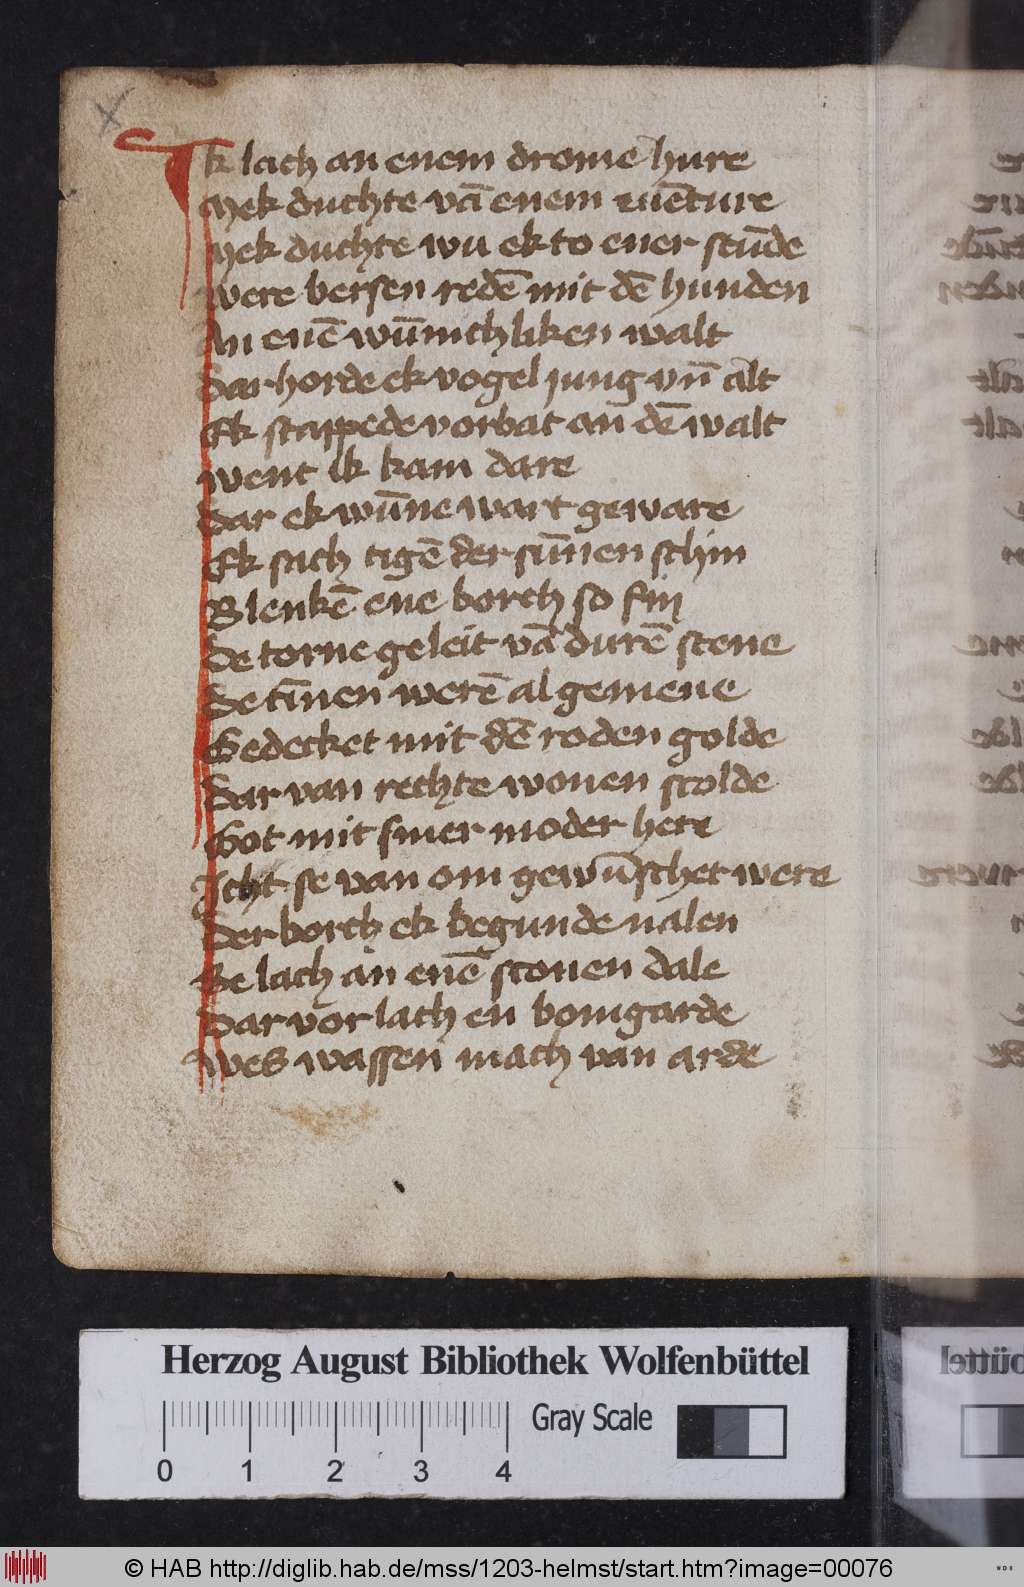 Ik lach an enem drome hure
Mek duchte vā enem euēture
Mek duchte wu ek to ener stūde
Were bersen redē mit dē hunden
An enē wūnichliken walt
Dar horde ek vogel jung vn̄ alt
Ek stappede vorbat an dē walt
Went ik kam dare
Dar ek wūne wart geware
Ek sach tigē der sūnen schin
Blenkē ene borch so fin
De torne geleit vā durē stene
De tīnen werē al gemene
Gedecket mit dē roden golde
Dar van rechte wonen scolde
Got mit siner moder here
Icht se van om gewūschet were
Der borch ek begunde nalen
Se lach an enē sconen dale
Dar vor lach en bomgarde
Wes wassen mach van arde
Herzog August Bibliothek Wolfenbüttel
0 1 2 3 4
Gray Scale
© HAB http://diglib.hab.de/mss/1203-helmst/start.htm?image=00076